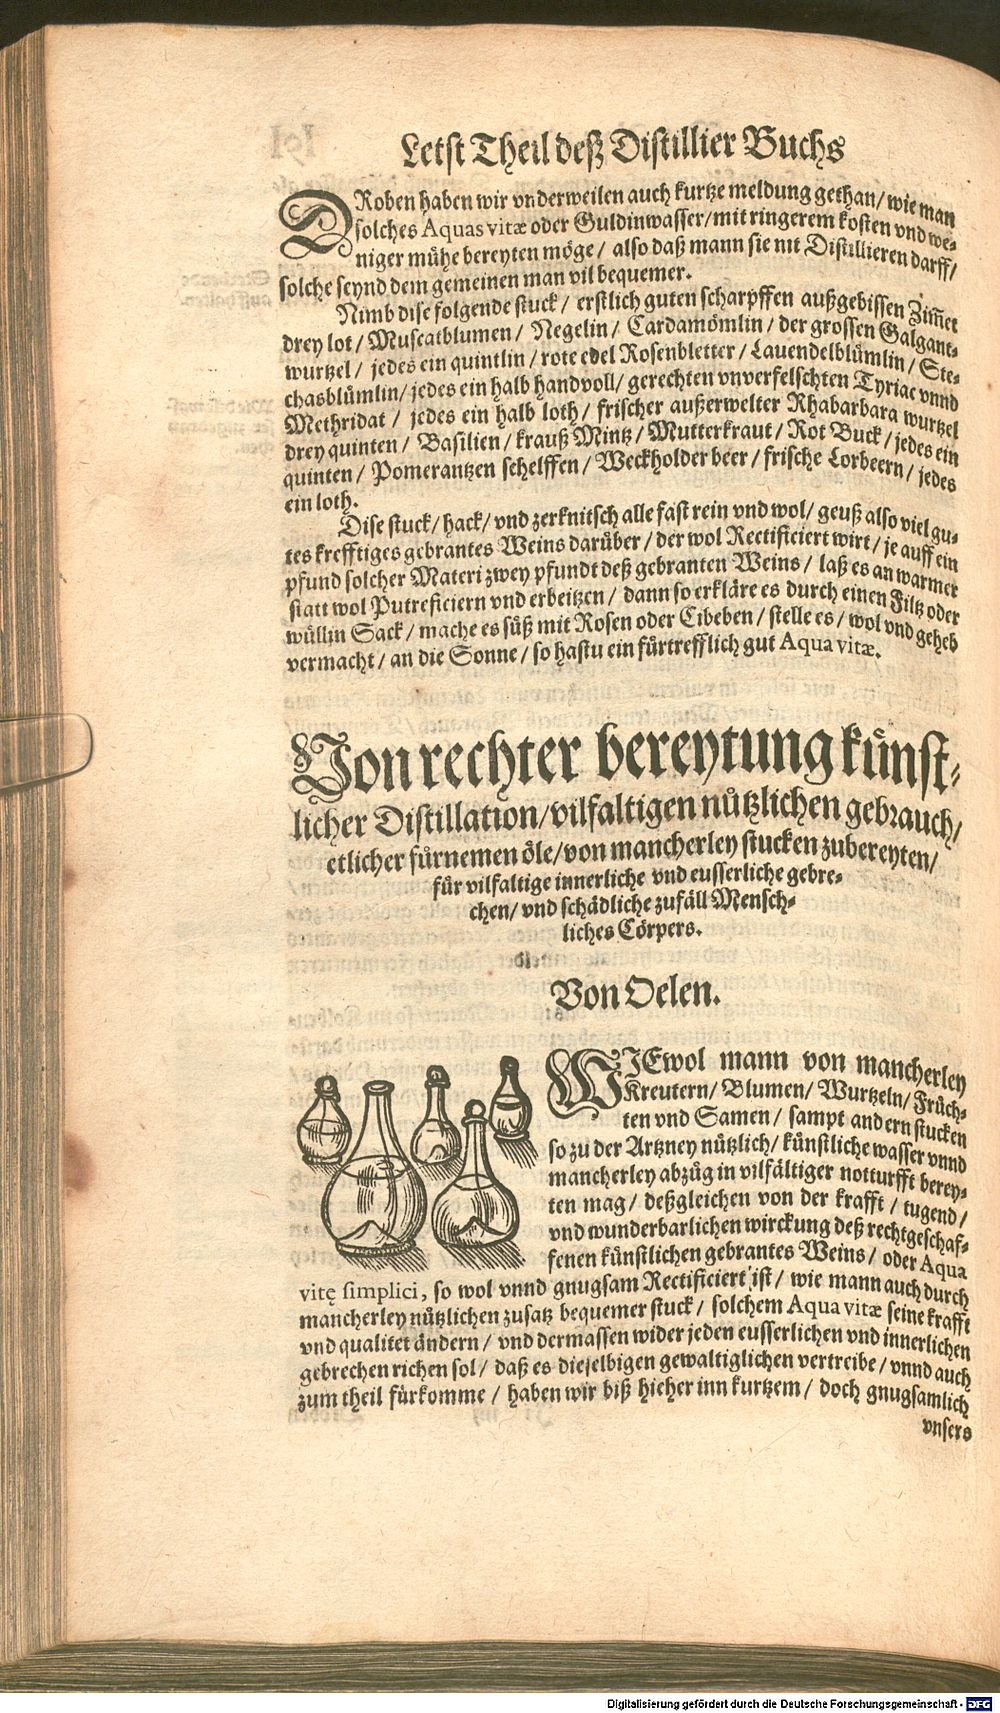 Letst Theil deß Distillier Buchs
DRoben haben wir vnderweilen auch kurtze meldung gethan/ wie man
solches Aquas vitæ oder Guldinwasser/ mit ringerem kosten vnd we-
niger mühe bereyten möge/ also daß mann sie nit Distillieren darff/
solche seynd dem gemeinen man vil bequemer.
Nimb dise folgende stuck/ erstlich guten scharpffen außgebissen Zim̃et
drey lot/ Muscatblumen/ Negelin/ Cardamömlin/ der grossen Galgant-
wurtzel/ jedes ein quintlin/ rote edel Rosenbletter/ Lauendelblümlin/ Ste-
chasblümlin/ jedes ein halb handvoll/ gerechten vnverfelschten Tyriac vnnd
Methridat/ jedes ein halb loth/ frischer außerwelter Rhabarbara wurtzel
drey quinten/ Basilien/ krauß Mintz/ Mutterkraut/ Rot Buck/ jedes ein
quinten/ Pomerantzen schelffen/ Weckholderbeer/ frische Lorbeern/ jedes
ein loth.
Dise stuck/ hack/ vnd zerknitsch alle fast rein vnd wol/ geuß also viel gu-
tes krefftiges gebrantes Weins darüber/ der wol Rectificiert wirt/ je auff ein
pfund solcher Materi zwey pfundt deß gebranten Weins/ laß es an warmer
statt wol Putreficiern vnd erbeitzen/ dann so erkläre es durch einen Filtz oder
wüllin Sack/ mache es süß mit Rosen oder Cibeben/ stelle es/ wol vnd geheb
vermacht/ an die Sonne/ so hastu ein fürtrefflich gut Aqua vitæ.
Von rechter bereytung künst-
licher Distillation/ vilfaltigen nützlichen gebrauch/
etlicher fürnemen öle/ von mancherley stucken zubereyten/
für vilfaltige innerliche vnd eusserliche gebre-
chen/ vnd schädliche zufäll Mensch-
liches Cörpers.
Von Oelen.
WIEwol mann von mancherley
Kreutern/ Blumen/ Wurtzeln/ Früch-
ten vnd Samen/ sampt andern stucken
so zu der Artzney nützlich/ künstliche wasser vnnd
mancherley abzüg in vilfältiger notturfft berey-
ten mag/ deßgleichen von der krafft/ tugend/
vnd wunderbarlichen wirckung deß rechtgeschaf-
fenen künstlichen gebrantes Weins/ oder Aqua
vitę simplici, so wol vnnd gnugsam Rectificiert ist/ wie mann auch durch
mancherley nützlichen zusatz bequemer stuck/ solchem Aqua vitæ seine krafft
vnd qualitet ändern/ vnd dermassen wider jeden eusserlichen vnd innerlichen
gebrechen richen sol/ daß es diejelbigen gewaltiglichen vertreibe/ vnnd auch
zum theil fürkomme/ haben wir biß hieher inn kurtzem/ doch gnugsamlich
vnsers
Digitalisierung gefördert durch die Deutsche Forschungsgemeinschaft - DFG